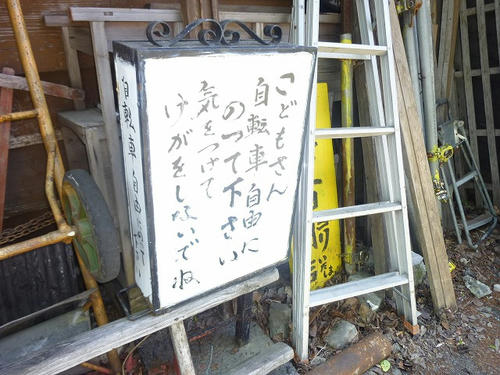 こどもさん
自転車自由に
のって下さい
気をつけて
けがをしないでね
自転車自由